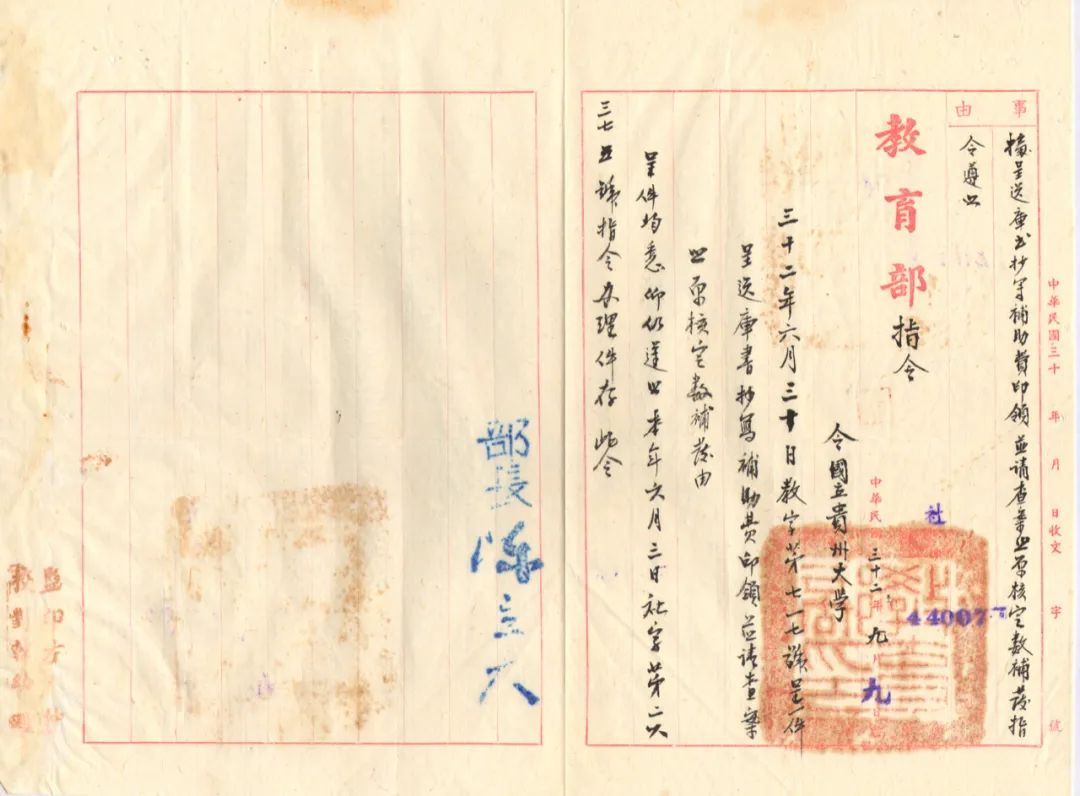 事由
據呈送庫書抄寫補助費印領並請查案照原核定數補發指
令遵照
教育部指令
中華民國三十 年 月 日收文 字 號
社
44007
中華民國三十二年九月九日
令國立貴州大學
三十二年六月三十日教字第七一七號呈一件
呈送庫書抄寫補助費印領並請查案
照原核定數補發由
呈件均悉仰仍遵照本年六月三日社字第二六
三七五號指令辦理件存此令
部長陳立夫
監印方